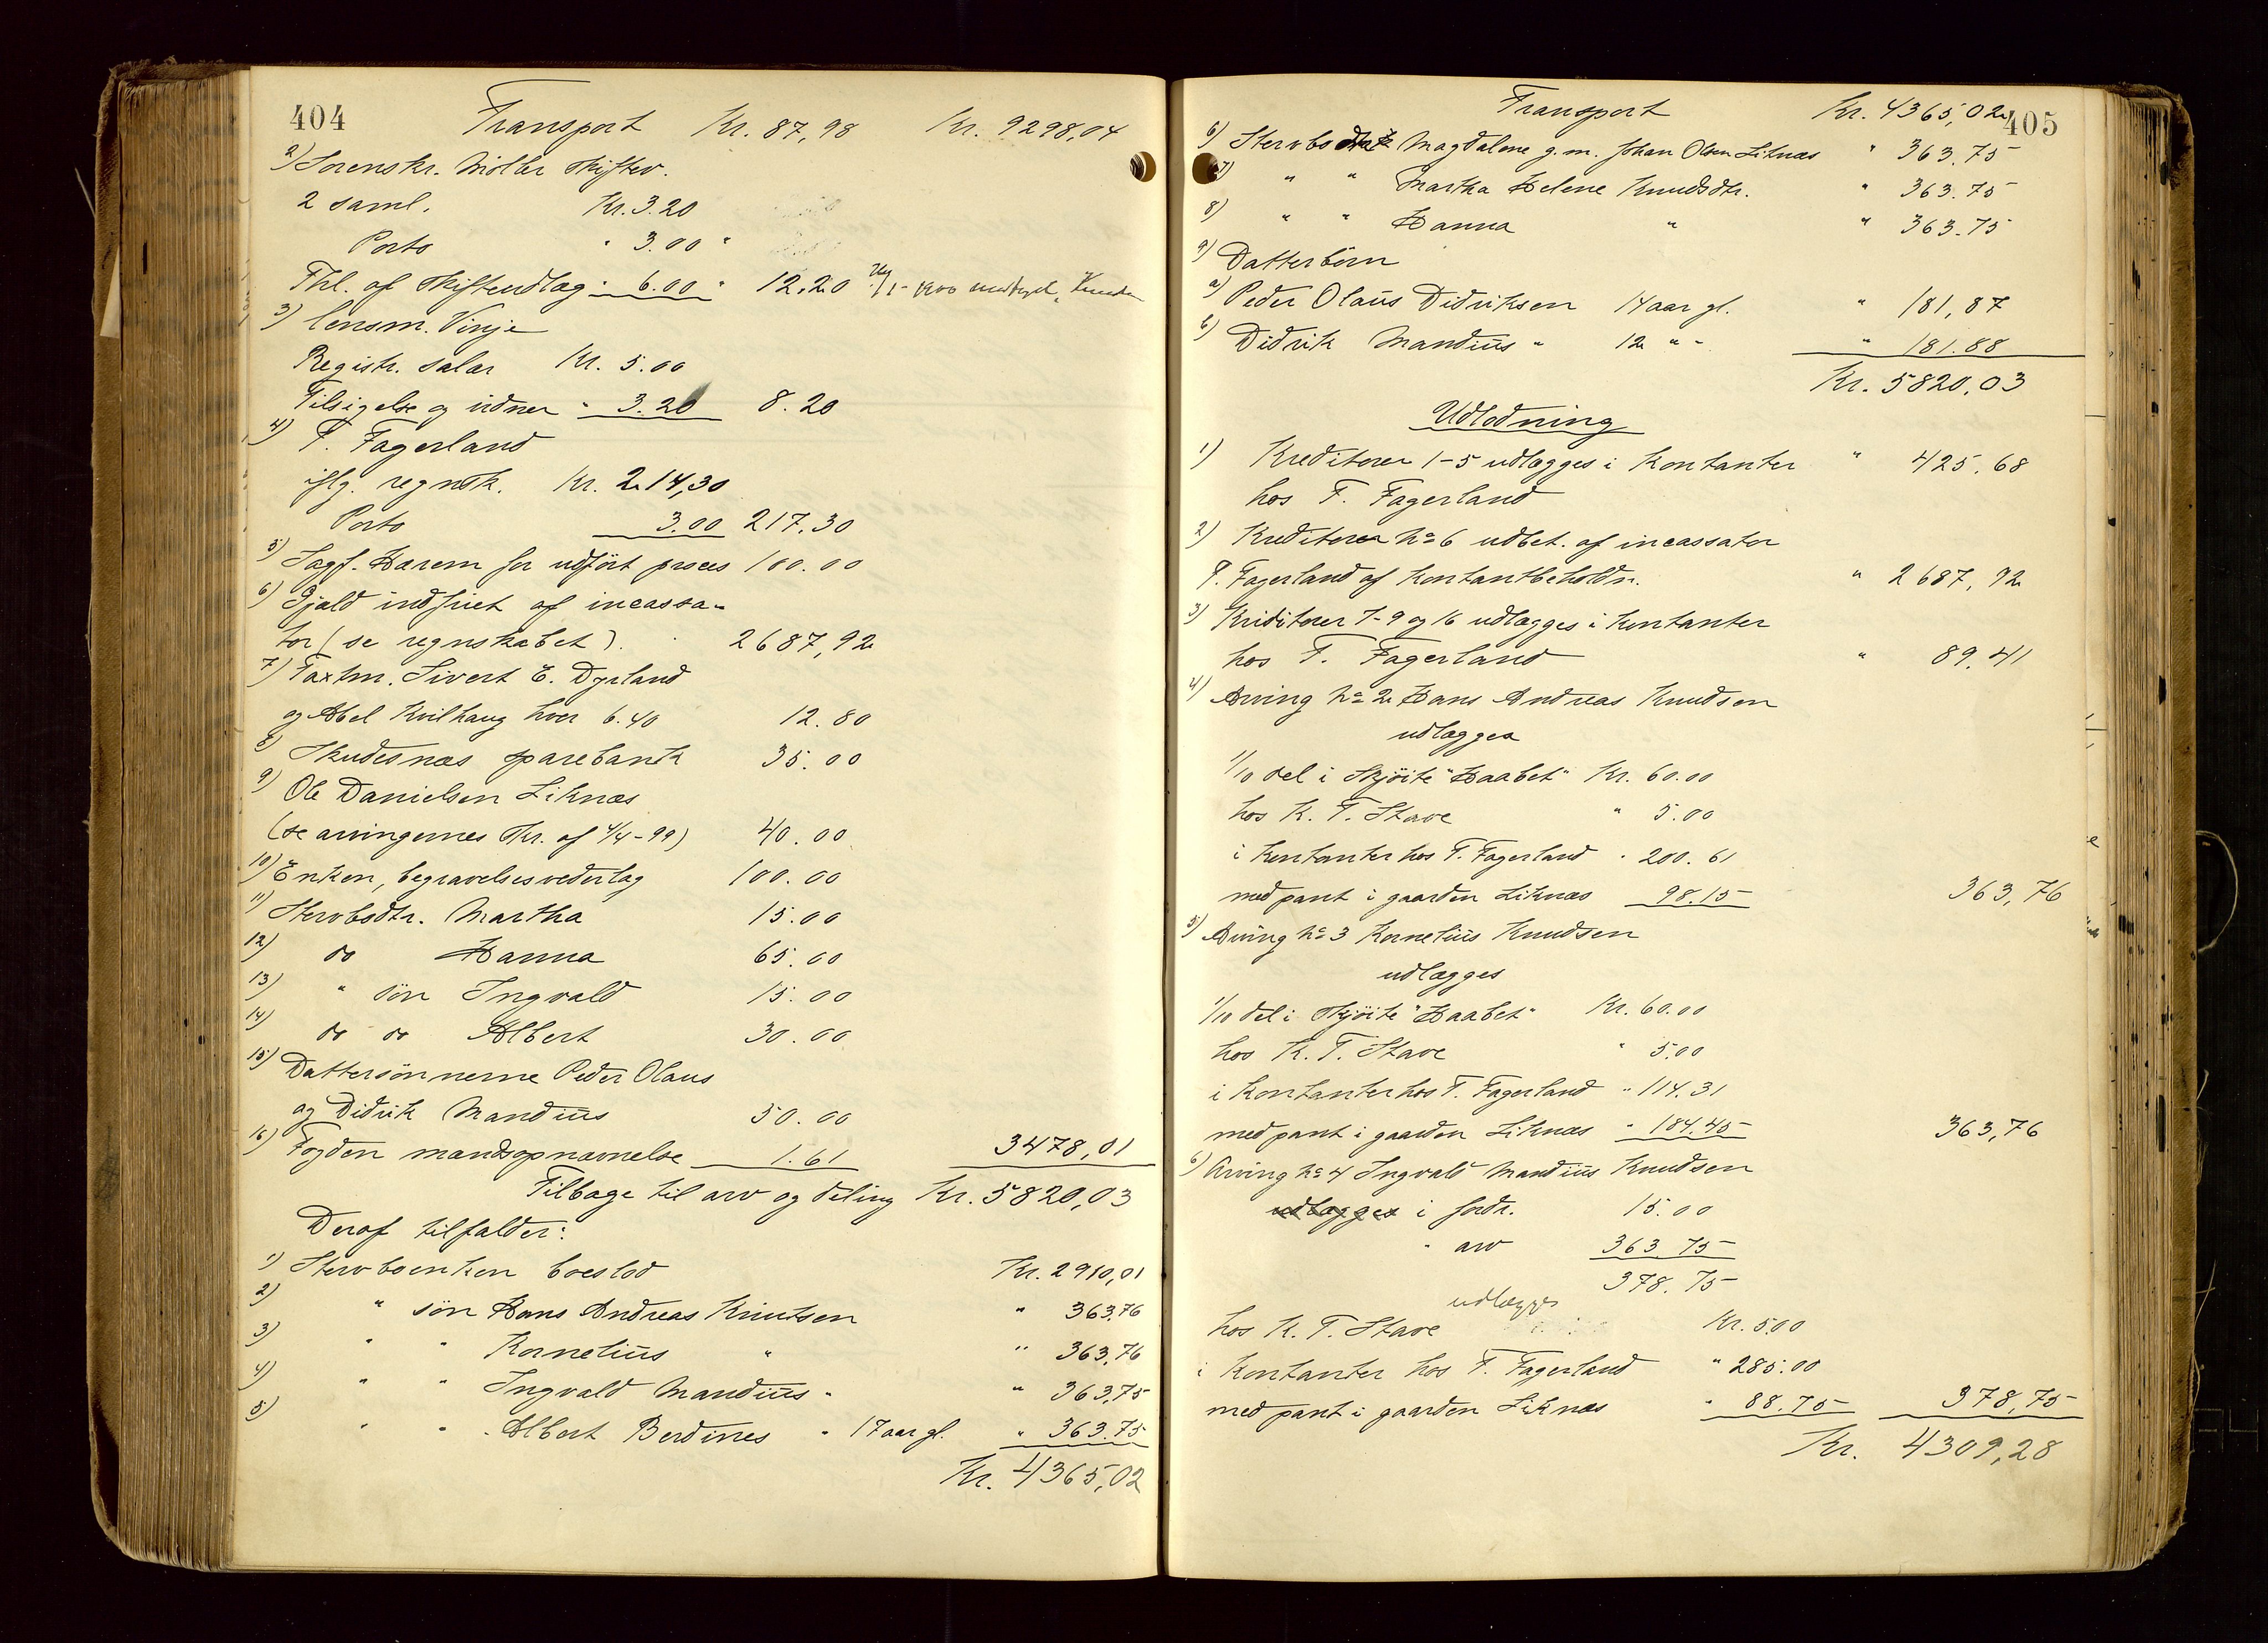 404
Transport Kr. 87,98 Kr. 9298,04
2) Sorenskr. Møller skiftev.
2 saml. Kr. 3.20
Porto " 3.00 "
Thl. af skifteudlæg " 6.00 " 12.20
3) lensm. Vinje
Registr. salar Kr. 5.00
Tilsigelse og vidner " 3.20 8.20
4) T. Fagerland
iflg. regnsk. Kr. 214,30
Porto 3.00 217.30
5) Sagf. Harem for udført proces 100.00
6) Gjæld indfriet af incassa-
tor (se regnskabet). 2687,92
7) Taxtm. Sivert E. Dyrland
og Abel Kvilhaug hver 6.40 12.80
8) Skudesnæs sparebank 35.00
9) Ole Danielsen Liknæs
(se arvingernes skr. af 4/4-99) 40.00
10) Enken, begravelsesvederlag 100.00
11) Stervbsdtr. Martha 15.00
12) do Hanna 65.00
13) " søn Ingvald 15.00
14) do do Albert 30.00
15) Dattersønnerne Peder Olaus
og Didrik Mandius 50.00
16) Fogden mandsopnævnelse 1.61 3478,01
Tilbage til arv og deling Kr. 5820,03
Deraf tilfalder:
1) Stervboenken boeslod Kr. 2910,01
2) " søn Hans Andreas Knutsen " 363,76
3) " " Kornelius " " 363,76
4) " " Ingvald Mandius " " 363,75
5) " " Albert Berdines " 17 aar gl. " 363.75
Kr. 4365,02
405
Transport Kr. 4365,02
6) Stervbsdtr Magdalene g.m. Johan Olsen Liknæs " 363.75
7) " " Martha Helene Knudsdtr. " 363.75
8) " " Hanna " " 363.75
9) Datterbørn
a) Peder Olaus Didriksen 14 aar gl. " 181,87
b) Didrik Mandius " 12 " " " 181.88
Kr. 5820,03
Udlodning
1) Kreditorer 1-5 udlægges i kontanter " 425.68
hos T. Fagerland
2) Kreditorer No 6 udbet. af incassator
T. Fagerland af kontantbeholdn. " 2687,92
3) Kreditorer 7-9 og 16 udlægges i kontanter
hos T. Fagerland " 89.41
4) Arving No 2 Hans Andreas Knudsen
udlægges
1/10 del i Skjøite "Haabet" Kr. 60.00
hos K. T. Stave " 5.00
i kontanter hos T. Fagerland " 200.61
med pant i gaarden Liknæs 98.15 363,76
5) Arving No 3 Kornelius Knudsen
udlægges
1/10 del i Skjøite "Haabet" Kr. 60.00
hos K. T. Stave " 5.00
i kontanter hos T. Fagerland " 114.31
med pant i gaarden Liknæs " 184.45 363,76
6) Arving No 4 Ingvald Mandius Knudsen
udlægges i fordr. 15.00
" arv 363.75
378.75
udlægges
hos K. T. Stave Kr. 5.00
i kontanter hos T. Fagerland " 285.00
med pant i gaarden Liknæs " 88.75 378,75
Kr. 4309,28